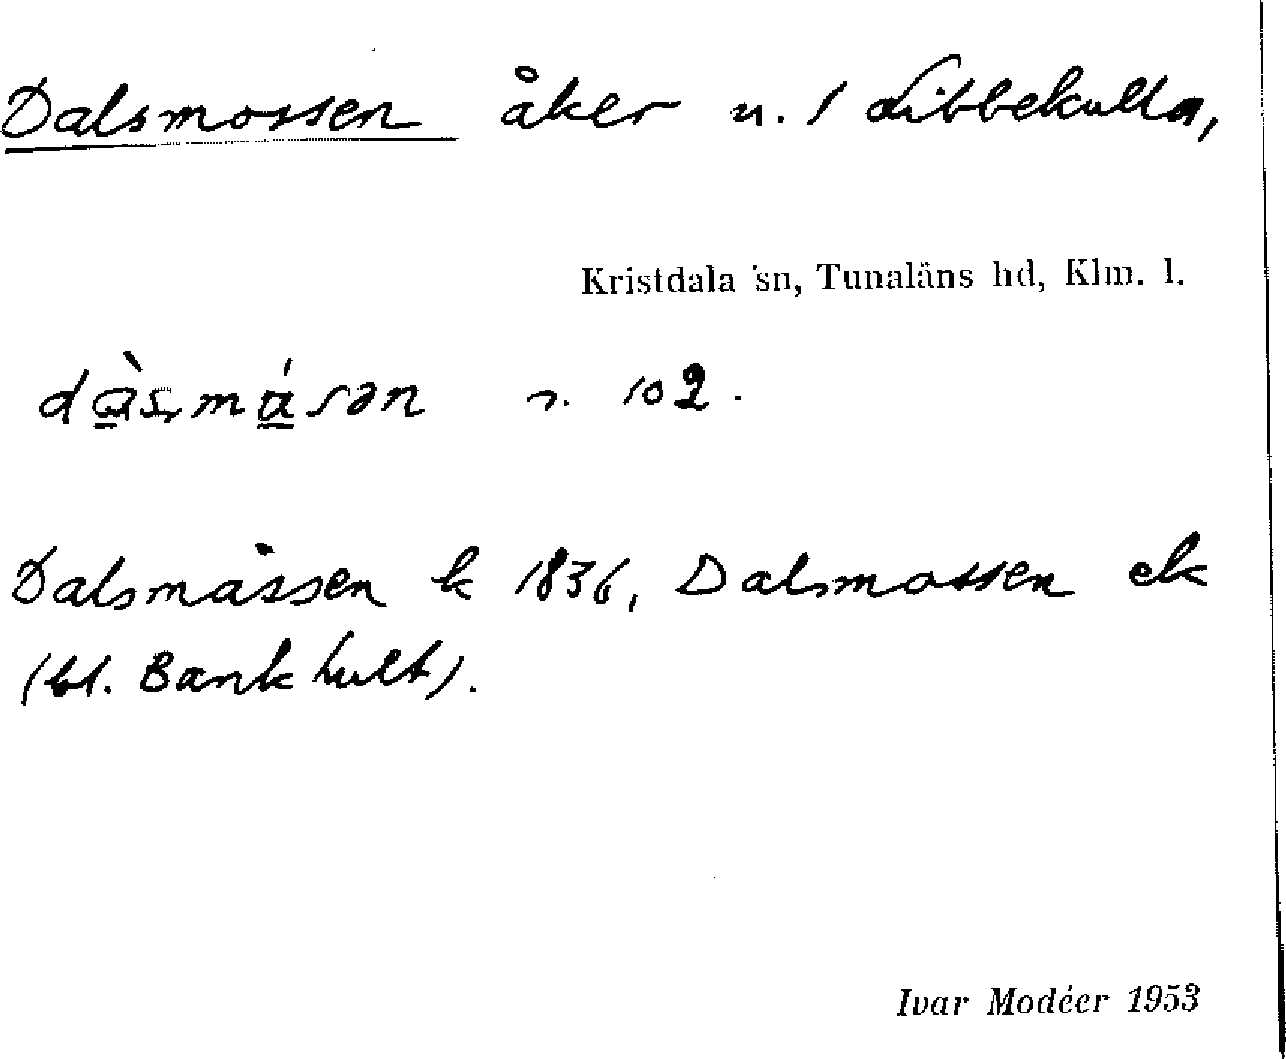 Dalsmossen åker n. 1 Libbekulla,
Kristdala sn, Tunaläns hd, Klm. l.
n. 102.
Dalsmåssen k 1836, Dalsmossen ek
(bl. Bankhult).
Ivar Modéer 1953